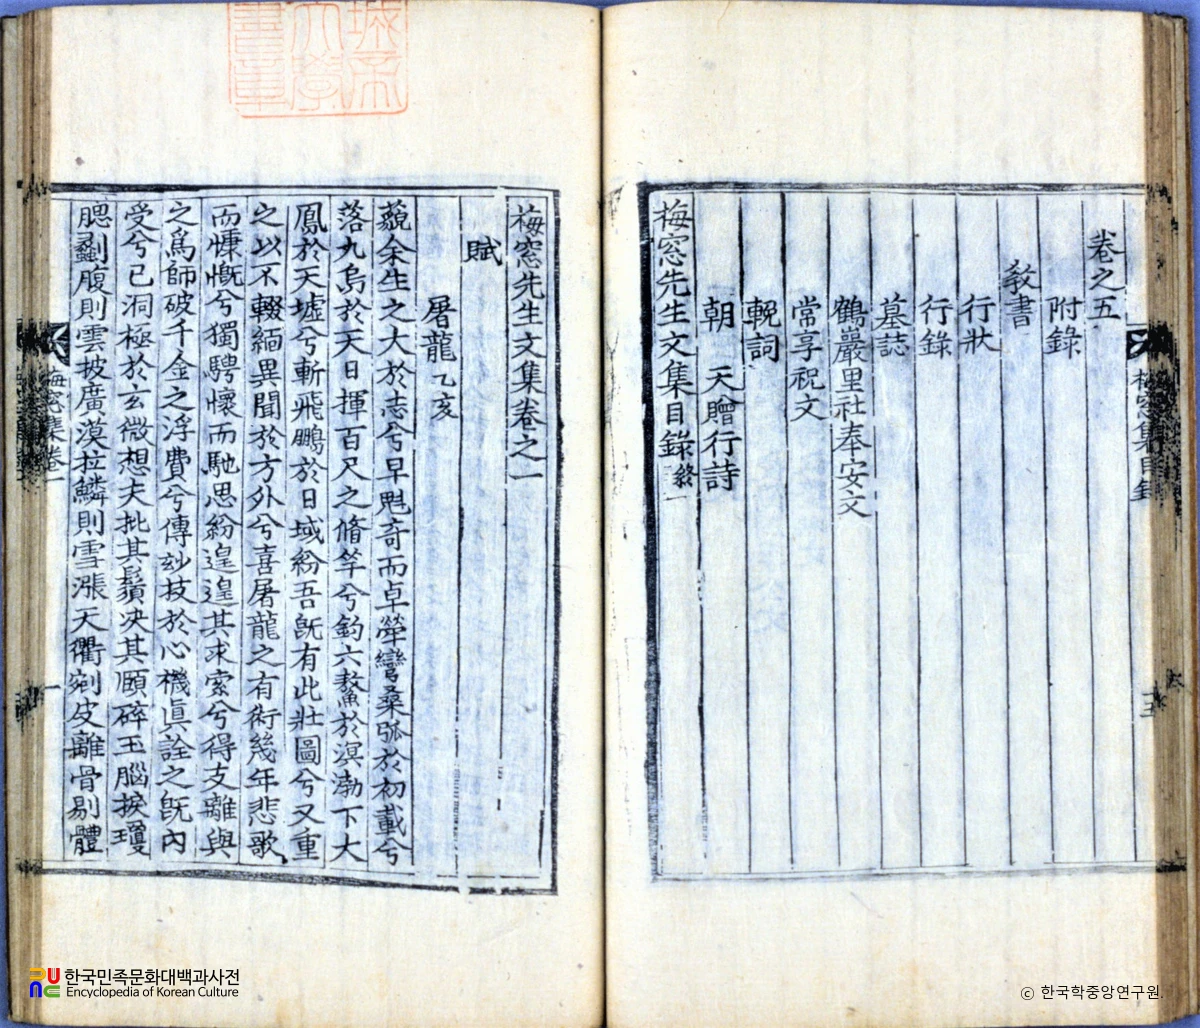 卷之五
附錄
敎書
行狀
行錄
墓誌
鶴巖里社奉安文
常享祝文
輓詞
朝 天贈行詩
梅窓先生文集目錄終
梅窓集目錄
梅窓先生文集卷之一
賦
屠龍乙亥
藐余生之大於志兮早魁奇而卓犖彎桑弧於初載兮
落九烏於天日揮百尺之脩竿兮釣六鰲於溟渤下大
鳳於天墟兮斬飛鵬於日域紛吾旣有此壯圖兮又重
之以不輟緬異聞於方外兮喜屠龍之有術幾年悲歌
而慷慨兮獨騁懷而馳思紛遑遑其求索兮得支離與
之爲師破千金之浮費兮傳玅技於心機眞詮之旣內
受兮已洞極於玄微想夫批其鬚決其頤碎玉腦捩瓊
腮劙腹則雲披廣漠拉鱗則雪漲天衢剜皮離骨剔體
梅窓集卷一
한국민족문화대백과사전
Encyclopedia of Korean Culture
ⓒ 한국학중앙연구원.